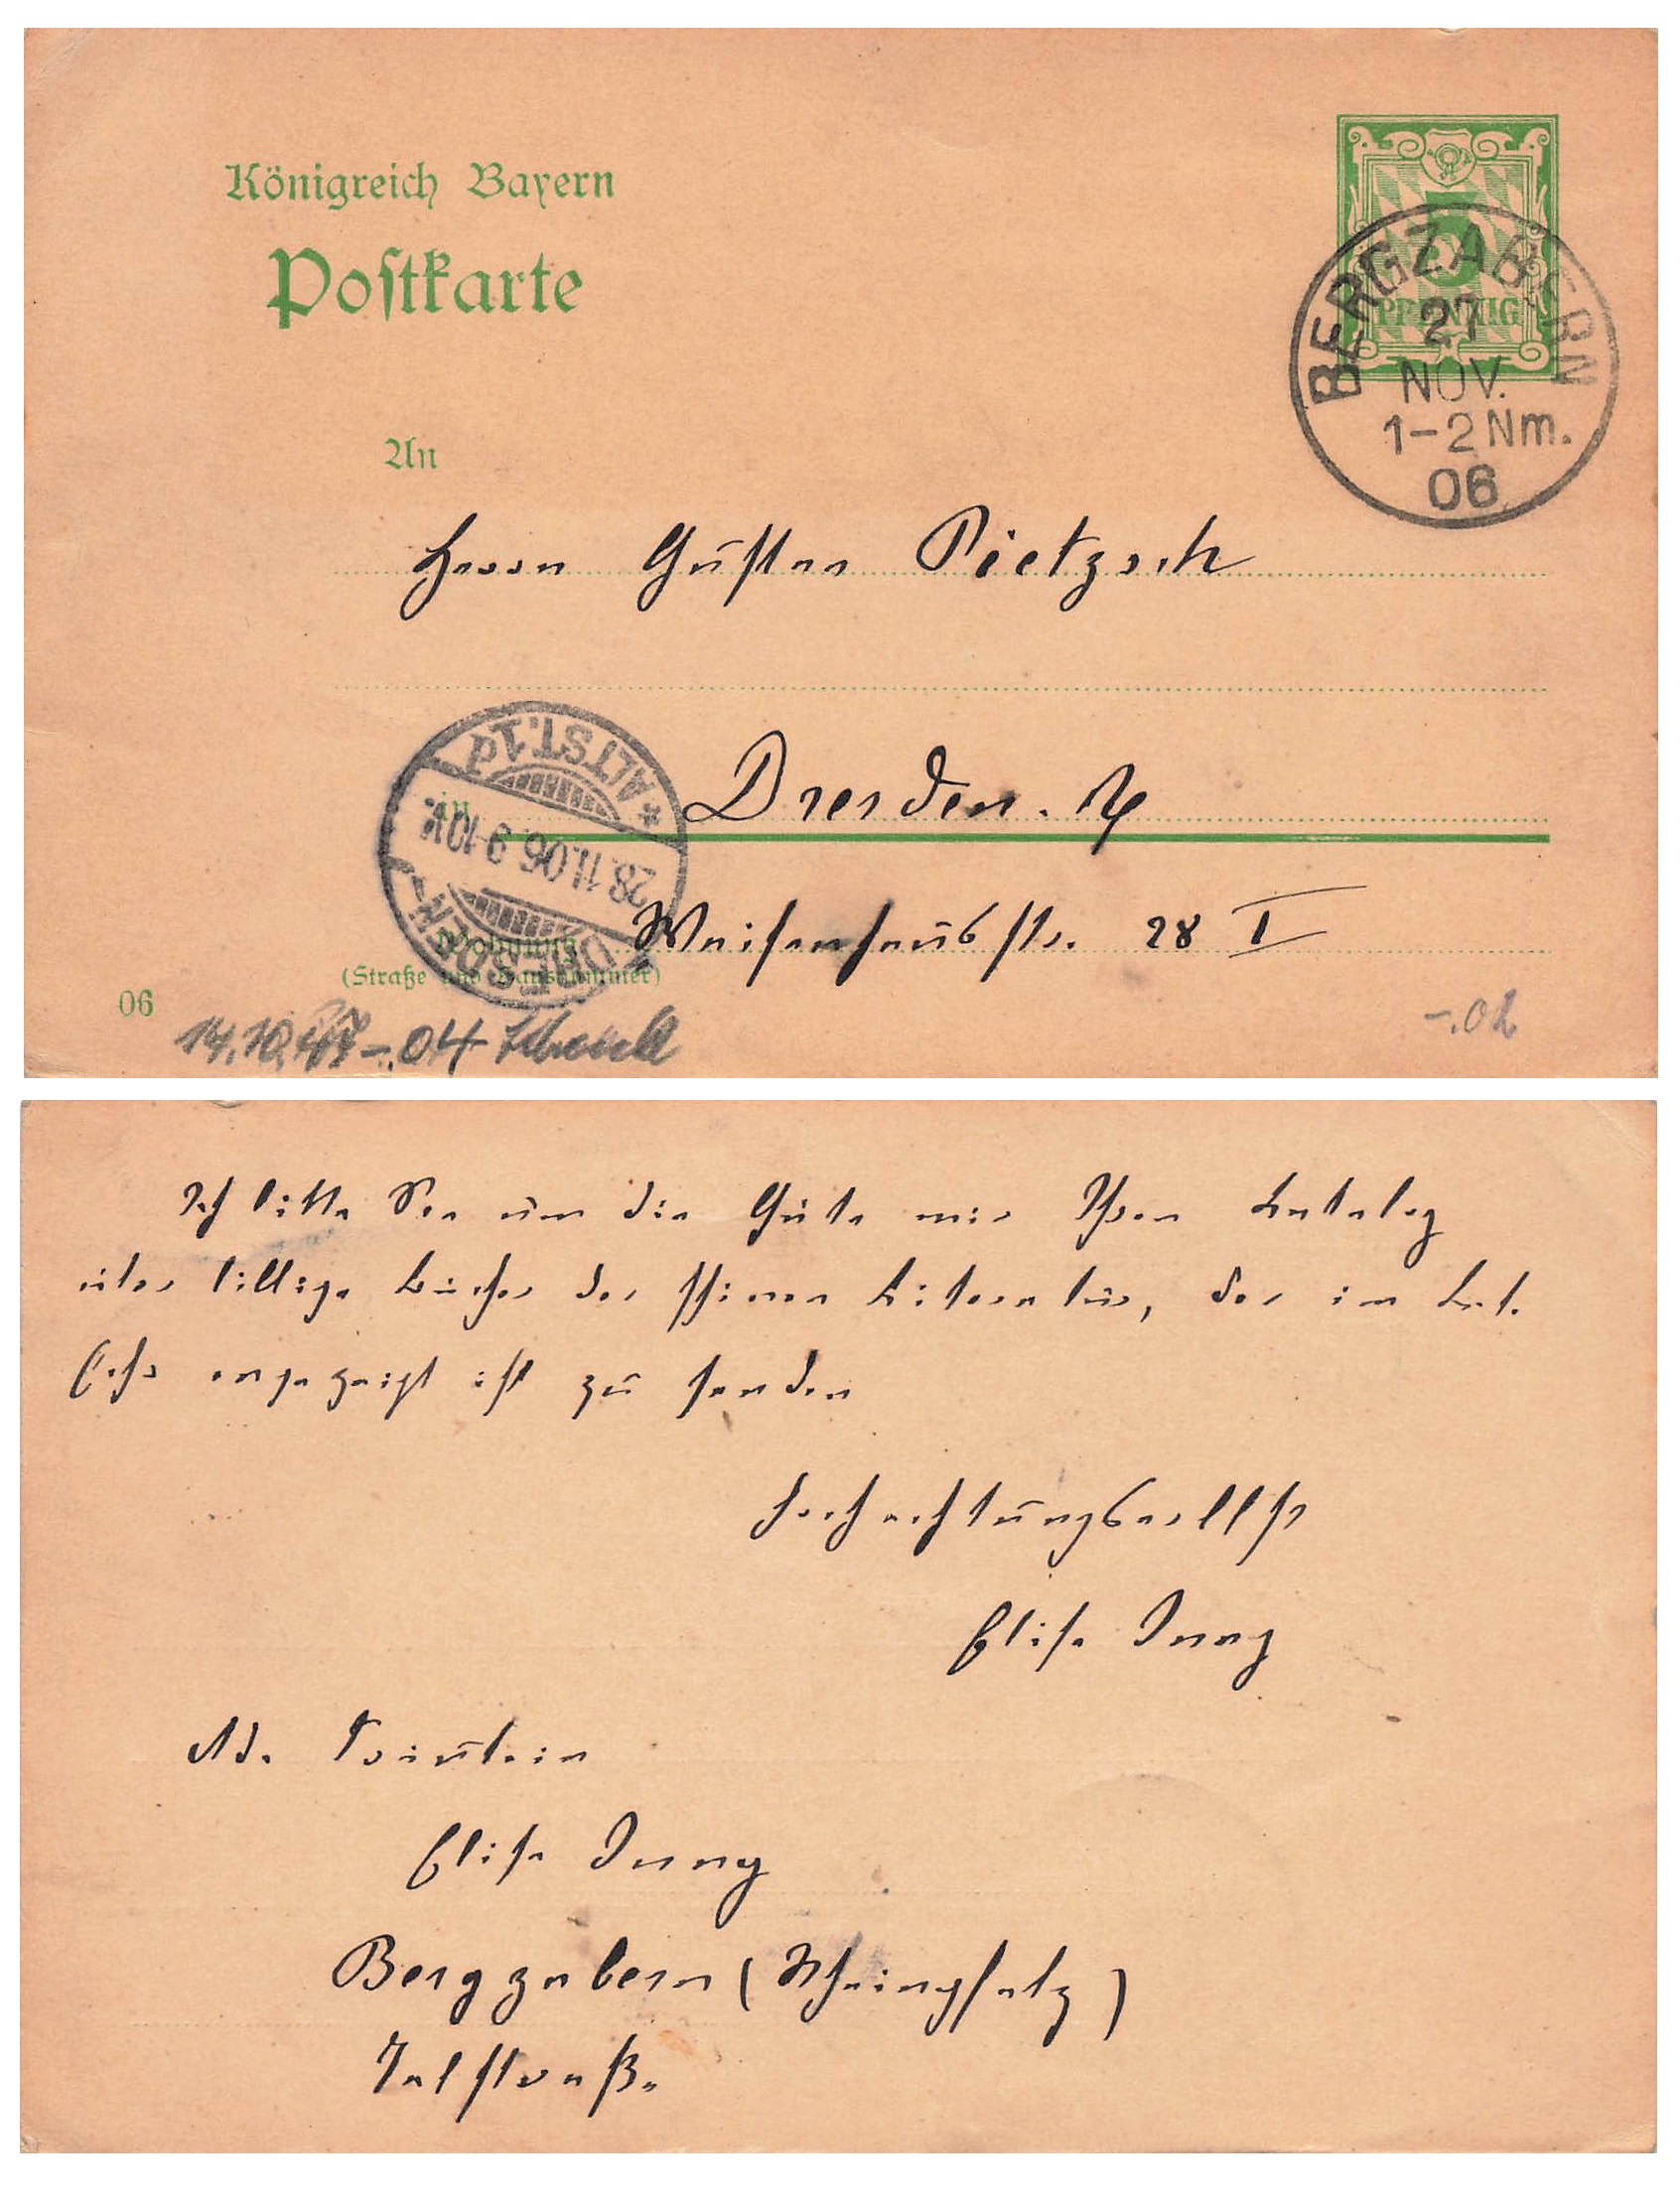 Königreich Bayern
Postkarte
5
PFENNIG
BERGZABERN
27
NOV.
1-2 Nm.
06
An
Herrn Gustav Pietzsch
in Dresden. A
ALTST. 1d
28.11.06. 9-10V.
DRESDEN
Wohnung
(Straße und Hausnummer)
Waisenhausstr. 28 I
06
14.10. -.04
-.02
Ich bitte Sie um die Güte mir Ihren Katalog
über billige Bücher der schönen Literatur, der im
angezeigt ist zu senden
Hochachtungsvollst
Elise Jung
Ad. Fräulein
Elise Jung
Bergzabern (Rheinpfalz)
Talstraße